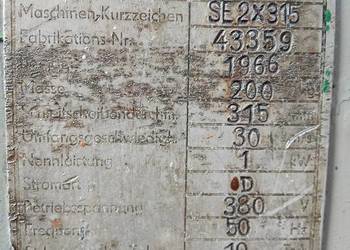 Maschinen-Kurzzeichen SE 2X315
Fabrikations-Nr. 43359
1966
Masse 200 kg
315 mm
Umfangsgeschwindigk. 30 m/s
Nennleistung 1 kW
Stromart D
Betriebsspannung 380 V
Frequenz 50 Hz
10